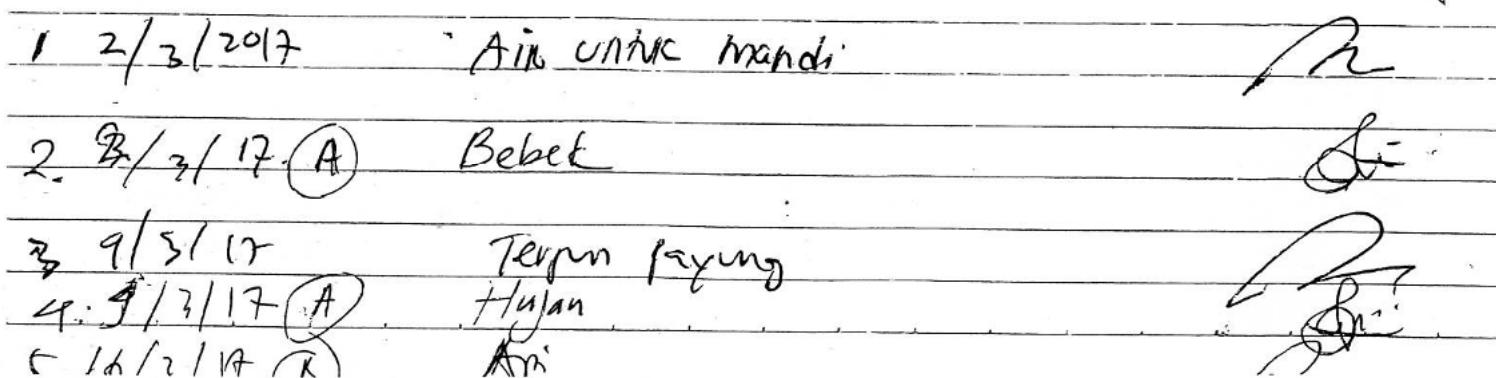 1 2/3/2017 Air untuk mandi
2. 2/3/17 (A) Bebek
3 9/3/17 Terjun payung
4. 9/3/17 (A) Hujan
5 Api